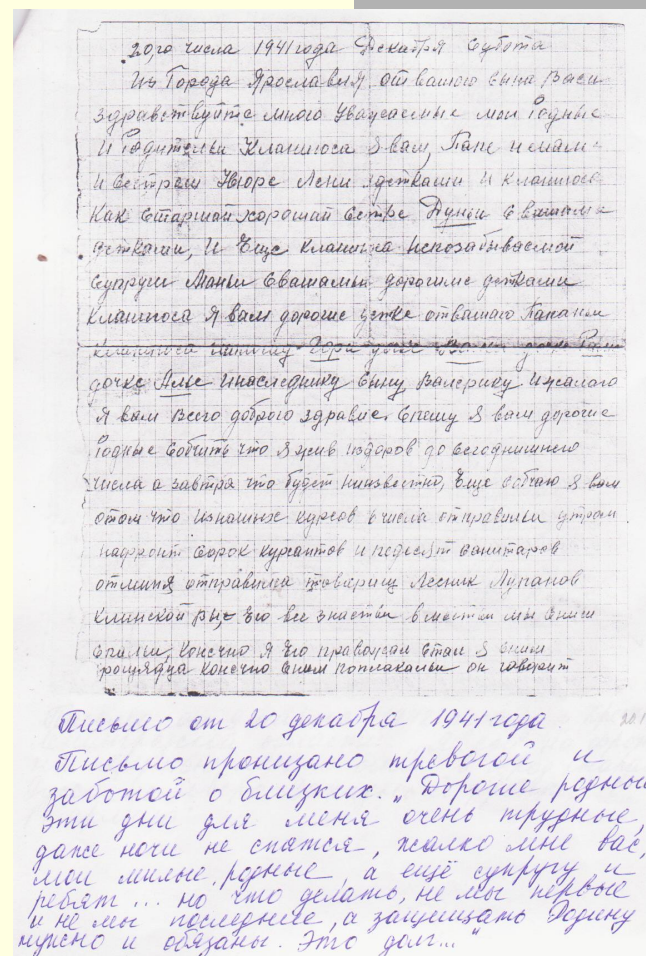 20го числа 1941 года Декабря Субота
Из Города Ярославля от вашого сына Васи
здравствуйте много Уважаемые мои Родные
И Родительи Кланиюса Я вам, Папе и маме
И Сестрем Нюре Лени здетками И кланиюса
Как Старшай хорошай Сетре Дуньи Свашыма
детками, И Еще кланиюса Непозабываемой
Супруги Маньи Свашамы дорогиме детками
Кланиюса Я вам дорогие детке от вашаго Папаньи
Кланиюса дочке
дочке Алье Инаследнику Сыну Валерику Ижалаго
Я вам Всего доброго здравие. Спешу Я вам дорогие
Родные Собчить что Я жив издоров до Сегоднишнего
числа а завтра что будет Ниизвестно, Еще собчаю Я вам
отом что Изнашых курсов числа отправильи утром
нафронт Сорок курсантов и педесят Санитаров
отминя отправилса товарищ Лесник Лупанов
Клинской Его все знаете вместьи мы Сним
Спальи, Конечно Я Его правожал Стал Я Сним
Конечно Сним поплакальи он говорит
Письмо от 20 декабря 1941 года
Письмо пронизано тревогой и
заботой о близких. „Дорогие родные
эти дни для меня очень трудные,
даже ночи не спятся, жалко мне вас,
мои милые, родные, а ещё супругу и
ребят... но что делать, не мы первые
и не мы последние, а защищать Родину
нужно и обязаны. Это долг..."